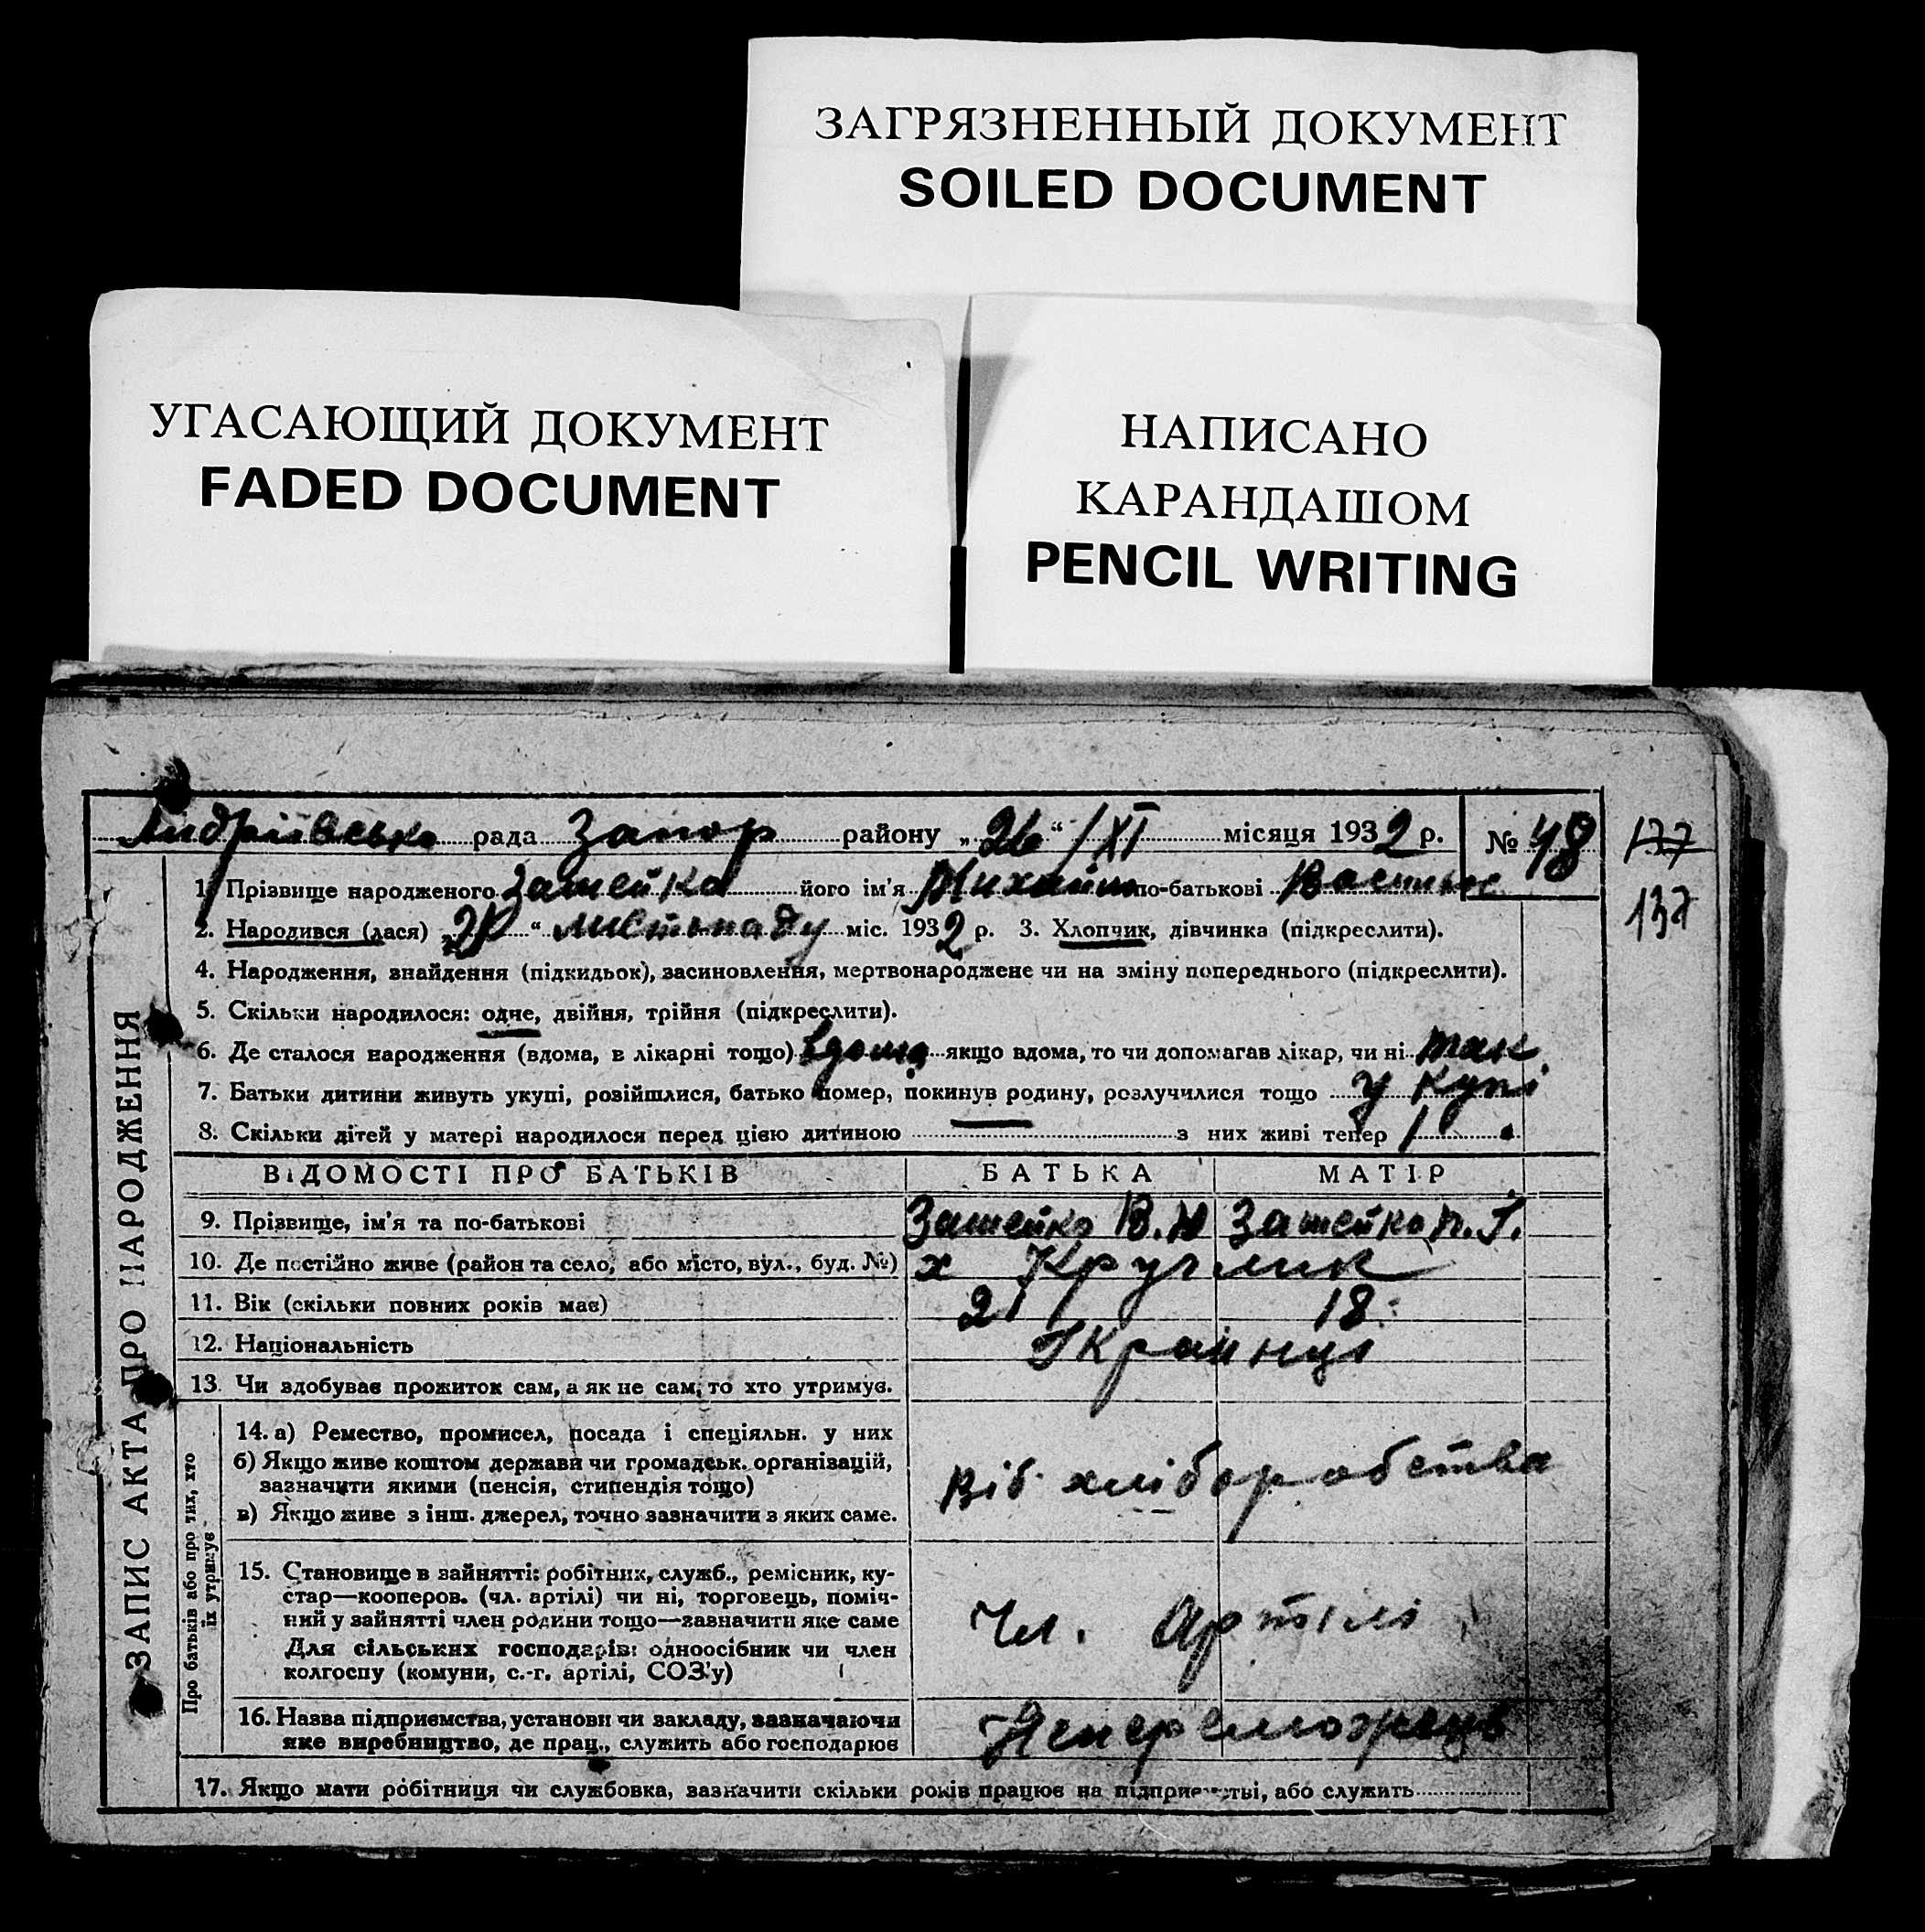 ЗАГРЯЗНЕННЫЙ ДОКУМЕНТ
SOILED DOCUMENT
УГАСАЮЩИЙ ДОКУМЕНТ
FADED DOCUMENT
НАПИСАНО
КАРАНДАШОМ
PENCIL WRITING
Андріївсько рада Запор району „26“ /XI місяця 1932 р. № 48
177
137
ЗАПИС АКТА ПРО НАРОДЖЕННЯ
1. Прізвище народженого Зашейко його ім'я Михайло по-батькові
2. Народився (лася) „ “ листопаду міс. 1932 р. 3. Хлопчик, дівчинка (підкреслити).
4. Народження, знайдення (підкидьок), засиновлення, мертвонароджене чи на зміну попереднього (підкреслити).
5. Скільки народилося: одне, двійня, трійня (підкреслити).
6. Де сталося народження (вдома, в лікарні тощо) вдома якщо вдома, то чи допомагав лікар, чи ні так
7. Батьки дитини живуть укупі, розійшлися, батько помер, покинув родину, розлучилися тощо у купі
8. Скільки дітей у матері народилося перед цією дитиною — з них живі тепер 1
ВІДОМОСТІ ПРО БАТЬКІВ БАТЬКА МАТІР
9. Прізвище, ім'я та по-батькові Зашейко В. Зашейко П. Г.
10. Де постійно живе (район та село, або місто, вул., буд. №) х Круглик
11. Вік (скільки повних років має) 21 18
12. Національність Українці
13. Чи здобуває прожиток сам, а як не сам, то хто утримує.
Про батьків або про тих, хто
їх утримує
14. а) Ремество, промисел, посада і спеціяльн. у них
б) Якщо живе коштом держави чи громадськ. організацій,
зазначити якими (пенсія, стипендія тощо)
в) Якщо живе з інш. джерел, точно зазначити з яких саме.
Від хліборобства
15. Становище в зайнятті: робітник, служб., ремісник, ку-
стар—кооперов. (чл. артілі) чи ні, торговець, поміч-
ний у зайнятті член родини тощо—зазначити яке саме
Для сільських господарів: одноосібник чи член
колгоспу (комуни, с.-г. артілі, СОЗ'у)
Чл. Артілі
16. Назва підприємства, установи чи закладу, зазначаючи
яке виробництво, де прац., служить або господарює
17. Якщо мати робітниця чи службовка, зазначити скільки років працює на підприємстві, або служить